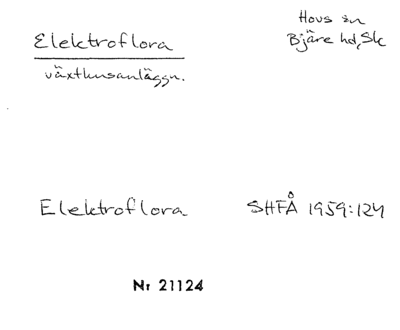 Elektroflora
växthusanläggn.
Hovs sn
Bjäre hd, Sk
Elektroflora
SHFÅ 1959:124
Nr 21124